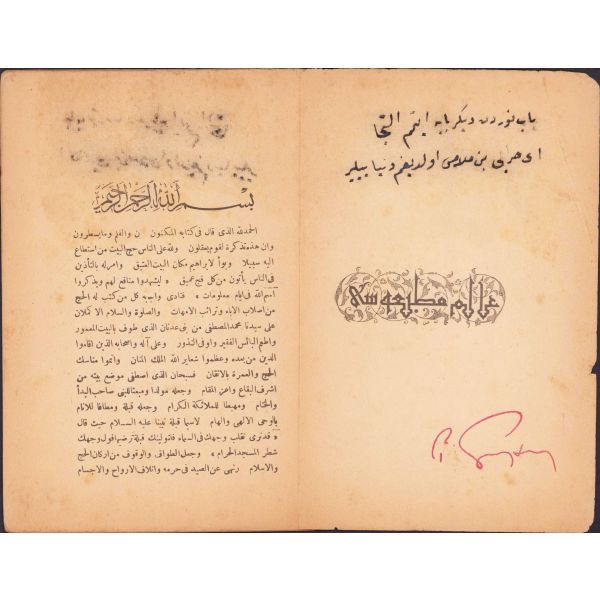 باب نوردن ديكر بابه ايتم التجا
اى حربى بن ملامى اولديغم دنيا بيلير
غزالرم مطبعه سى
بسم الله الرحمن الرحيم
الحمدلله الذى قال فى كتابه المكنون ن والقلم ومايسطرون
وان هذه تذكرة لقوم يعقلون ولله على الناس حج البيت من استطاع
اليه سبيلا وبوأ لابراهيم مكان البيت العتيق وامر له بالتأذين
فى الناس يأتون من كل فج عميق « ليشهدوا منافع لهم ويذكروا
اسم الله فى ايام معلومات » فنادى واجابه كل من كتب له الحج
من اصلاب الاباء وترائب الامهات والصلوة والسلام الاكملان
على سيدنا محمد المصطفى من بنى عدنان الذى طوف بالبيت المعمور
واطعم البائس الفقير واوفى النذور وعلى آله واصحابه الذين اقاموا
الدين من بعده وعظموا شعاير الله الملك المنان واتموا مناسك
الحج والعمرة بالاتقان فسبحان الذى اصطفى موضع بيته من
اشرف البقاع واعز المقام وجعله مولدا ومبعثا للنبى صاحب البدأ
والختام ومهبطا للملائكة الكرام وجعله قبلة ومطافا للانام
باوحى الالهى والهام لاسيما قبلة نبينا عليه السلام حيث قال
« قد نرى تقلب وجهك فى السماء فلنولينك قبلة ترضيها فول وجهك
شطر المسجد الحرام » وجعل الطواف والوقوف من اركان الحج
والاسلام ونهى عن الصيد فى حرمه واتلاف الارواح والاجسام